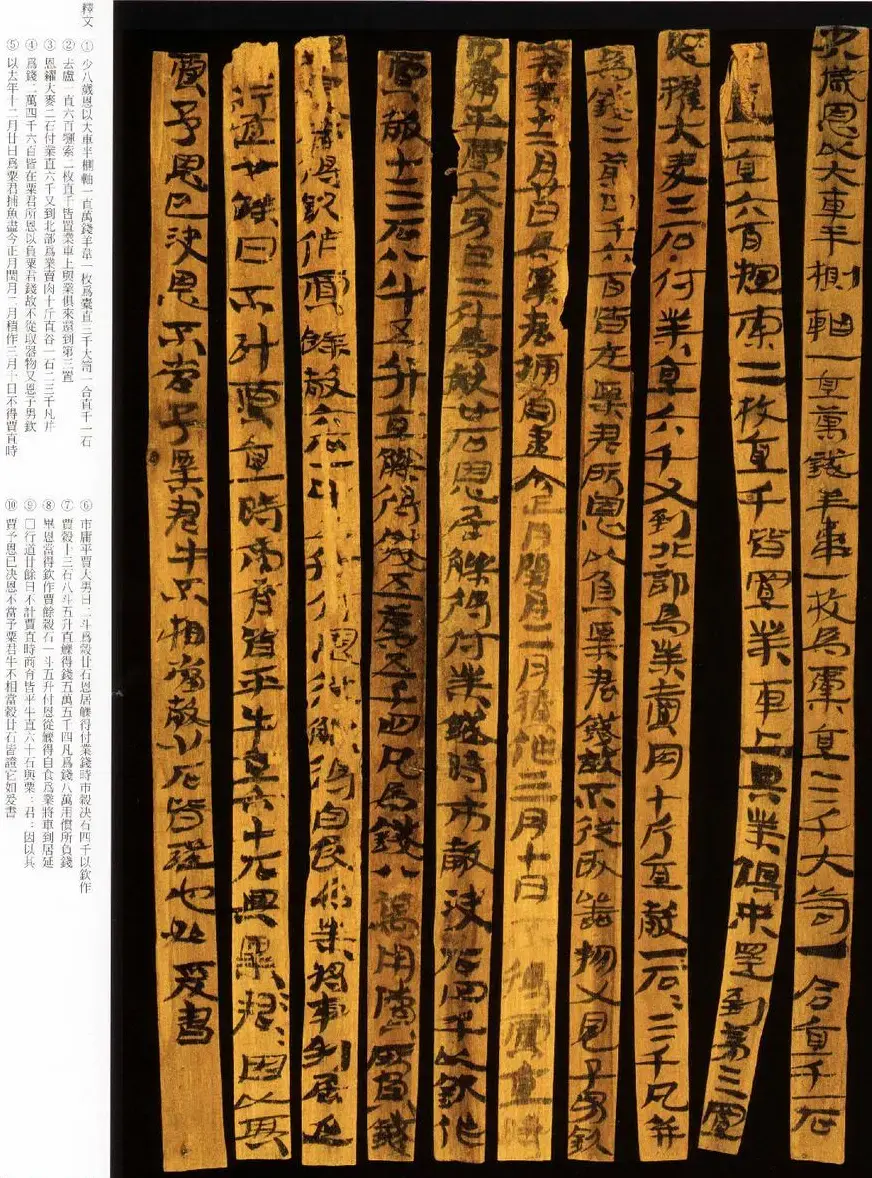 少八歲恩以大車半側軸一直萬錢羊韋一枚為橐直三千大笥一合直千一石
去盧一直六百䌰索二枚直千皆置業車上與業俱來還到第三置
恩糴大麥二石付業直六千又到北部為業賣肉十斤直谷一石二三千凡并
為錢二萬四千六百皆在粟君所恩以負粟君錢故不從取器物又恩子男欽
以去年十二月廿日為粟君捕魚盡今正月閏月二月積作三月十日不得賈直時
市庸平賈大男日二斗為穀廿石恩居觻得付業錢時市穀決石四千以欽作
賈穀十三石八斗五升直觻得錢五萬五千四凡為錢八萬用償所負錢
畢恩當得欽作賈餘穀六石一斗五升付恩從觻得自食為業將車到居延
行道廿餘日不計賈直時商育皆平牛直六十石與粟=君=因以其
賈予恩已決恩不當予粟君牛不相當穀廿石皆證也如爰書
釋文
① 少八歲恩以大車半側軸一直萬錢羊韋一枚為橐直三千大笥一合直千一石
② 去盧一直六百䌰索二枚直千皆置業車上與業俱來還到第三置
③ 恩糴大麥二石付業直六千又到北部為業賣肉十斤直谷一石二三千凡并
④ 為錢二萬四千六百皆在粟君所恩以負粟君錢故不從取器物又恩子男欽
⑤ 以去年十二月廿日為粟君捕魚盡今正月閏月二月積作三月十日不得賈直時
⑥ 市庸平賈大男日二斗為穀廿石恩居觻得付業錢時市穀決石四千以欽作
⑦ 賈穀十三石八斗五升直觻得錢五萬五千四凡為錢八萬用償所負錢
⑧ 畢恩當得欽作賈餘穀石一斗五升付恩從觻得自食為業將車到居延
⑨ □行道廿餘日不計賈直時商育皆平牛直六十石與粟：君：因以其
⑩ 賈予恩已決恩不當予粟君牛不相當穀廿石皆證它如爰書